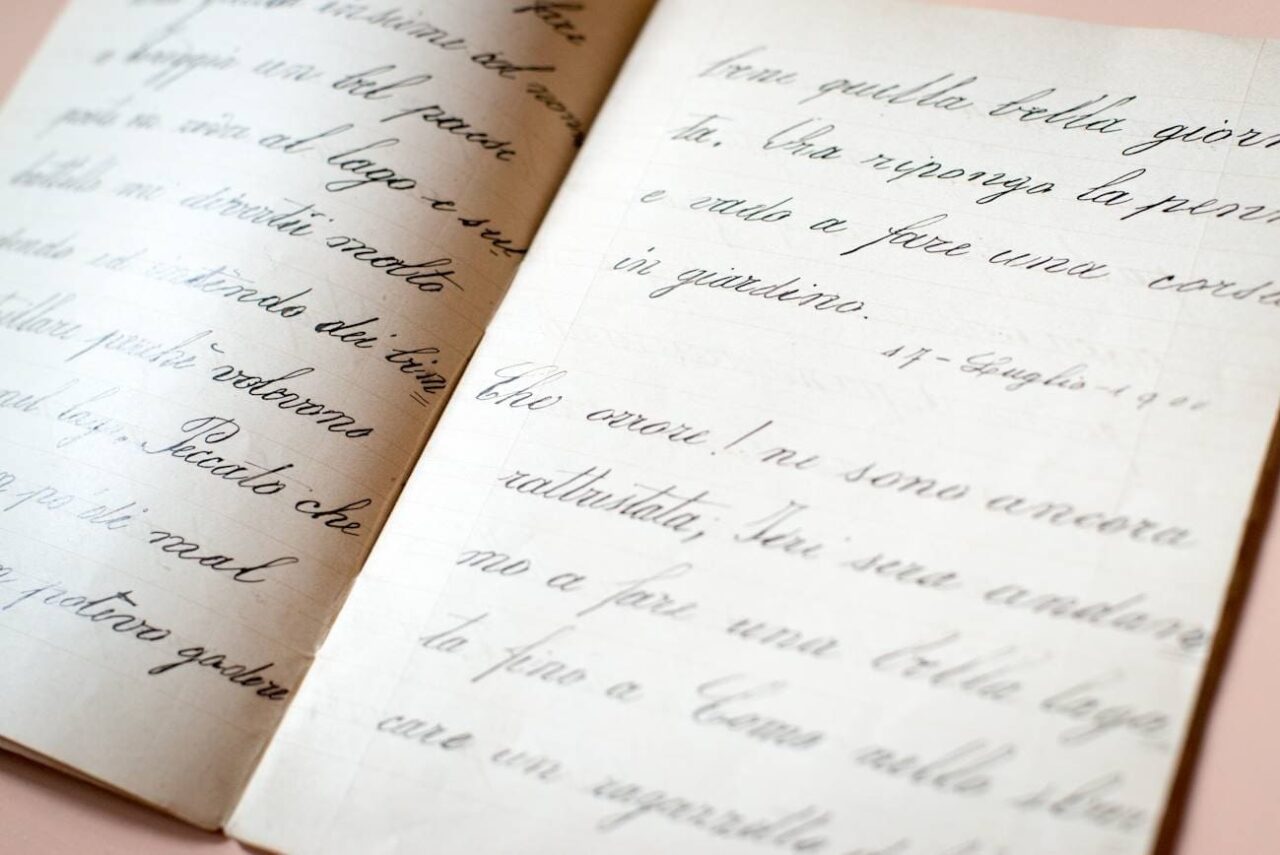 fare
insieme col nonn
un bel paese
al lago e sul
battello mi divertii molto
vedendo ed sentendo dei bim
strillare perchè volevano
nel lago. Peccato che
po' di mal
potevo godere
bene quella bella giorn
ta. Ora ripongo la penn
e vado a fare una corsa
in giardino.
17 - Luglio - 19
Che orrore! ne sono ancora
rattristata; Ieri sera andam
mo a fare una bella laga
ta fino a Como nello sbar
care un ragazzetto